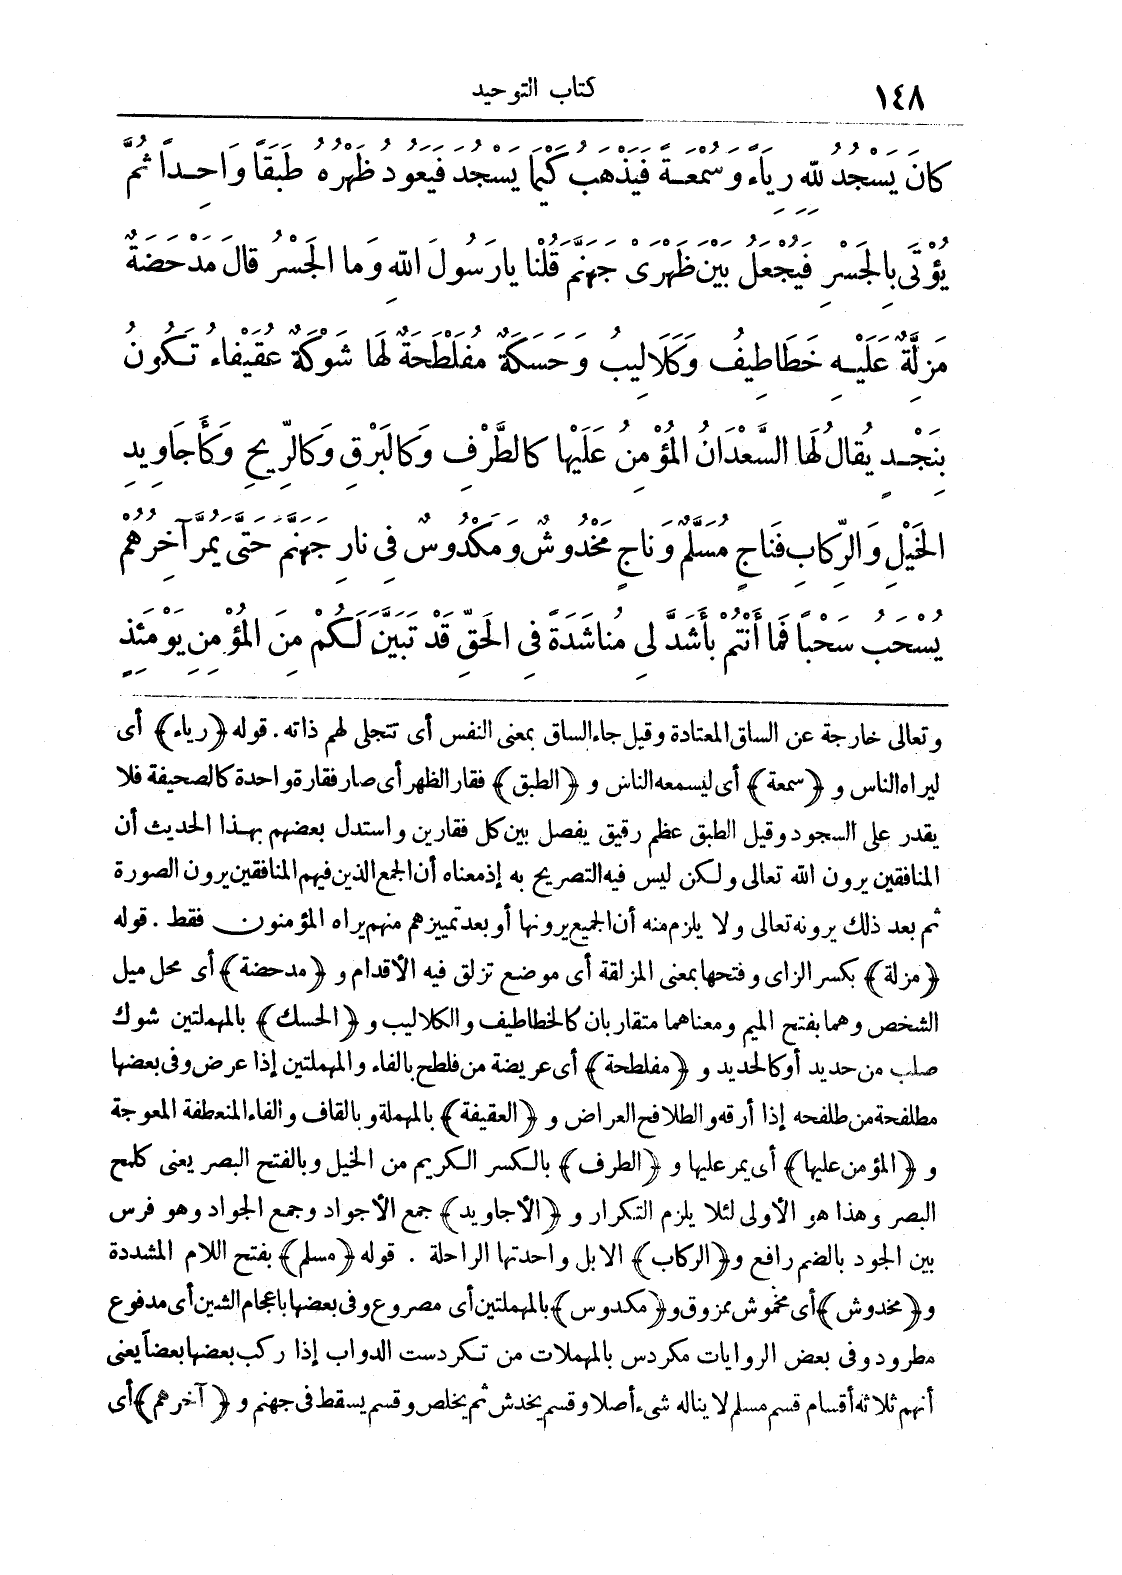 ١٤٨
كتاب التوحيد
كانَ يَسْجُدُ لِلّهِ رِيَاءً وَسُمْعَةً فَيَذْهَبُ كَيْمَا يَسْجُدَ فَيَعُودُ ظَهْرُهُ طَبَقًا وَاحِداً ثُمَّ
يُؤْتَى بِالْجَسْرِ فَيُجْعَلُ بَيْنَ ظَهْرَىْ جَهَنَّمَ قُلْنَا يارَسُولَ اللهِ وَما الجَسْرُ قالَ مَدْحَضَةٌ
مَزِلَّةٌ عَلَيْهِ خَطَاطِيفُ وَكَلَالِيبُ وَحَسَكَةٌ مُفَلْطَحَةٌ لَهَا شَوْكَةٌ عُقَيْفاءُ تَكُونُ
بِنَجْدٍ يُقالُ لَهَا السَّعْدَانُ المُؤْمِنُ عَلَيْها كالطَّرْفِ وَكالبَرْقِ وَكالرِّيحِ وَكَأَجَاوِيدِ
الخَيْلِ وَالرِّكابِ فَناجٍ مُسَلَّمٌ وَناجٍ مَخْدُوشٌ وَمَكْدُوسٌ فِى نارِ جَهَنَّمَ حَتَّى يَمُرَّ آخِرُهُمْ
يُسْحَبُ سَحْبًا فَمَا أَنْتُمْ بِأَشَدَّ لِى مُناشَدَةً فِى الحَقِّ قَدْ تَبَيَّنَ لَكُمْ مِنَ المُؤْمِنِ يَوْمَئِذٍ
وتعالى خارجة عن الساق المعتادة وقيل جاء الساق بمعنى النفس أى تتجلى لهم ذاته . قوله ﴿رياء﴾ أى
ليراه الناس و ﴿سمعة﴾ أى ليسمعه الناس و ﴿الطبق﴾ فقار الظهر أى صار فقارة واحدة كالصحيفة فلا
يقدر على السجود وقيل الطبق عظم رقيق يفصل بين كل فقارين واستدل بعضهم بهذا الحديث أن
المنافقين يرون الله تعالى ولكن ليس فيه التصريح به إذ معناه أن الجمع الذين فيهم المنافقين يرون الصورة
ثم بعد ذلك يرونه تعالى ولا يلزم منه أن الجميع يرونها أو بعد تمييزهم منهم يراه المؤمنون فقط . قوله
﴿مزلة﴾ بكسر الزاى وفتحها بمعنى المزلقة أى موضع تزلق فيه الأقدام و ﴿مدحضة﴾ أى محل ميل
الشخص وهما بفتح الميم ومعناهما متقاربان كالخطاطيف والكلاليب و ﴿الحسك﴾ بالمهملتين شوك
صلب من حديد أو كالحديد و ﴿مفلطحة﴾ أى عريضة من فلطح بالفاء والمهملتين إذا عرض وفى بعضها
مطلفحة من طلفحه إذا أرقه والطلافح العراض و ﴿العقيفة﴾ بالمهملة وبالقاف والفاء المنعطفة المعوجة
و ﴿المؤمن عليها﴾ أى يمر عليها و ﴿الطرف﴾ بالكسر الكريم من الخيل وبالفتح البصر يعنى كلمح
البصر وهذا هو الأولى لئلا يلزم التكرار و ﴿الأجاويد﴾ جمع الأجواد وجمع الجواد وهو فرس
بين الجود بالضم رافع و﴿الركاب﴾ الابل واحدتها الراحلة . قوله ﴿مسلم﴾ بفتح اللام المشددة
و﴿مخدوش﴾ أى مخموش ممزوق و﴿مكدوس﴾ بالمهملتين أى مصروع وفى بعضها باعجام الشين أى مدفوع
مطرود وفى بعض الروايات مكردس بالمهملات من تكردست الدواب إذا ركب بعضها بعضاً يعنى
أنهم ثلاثة أقسام قسم مسلم لا يناله شىء أصلا وقسم يخدش ثم يخلص وقسم يسقط فى جهنم و ﴿آخرهم﴾ أى